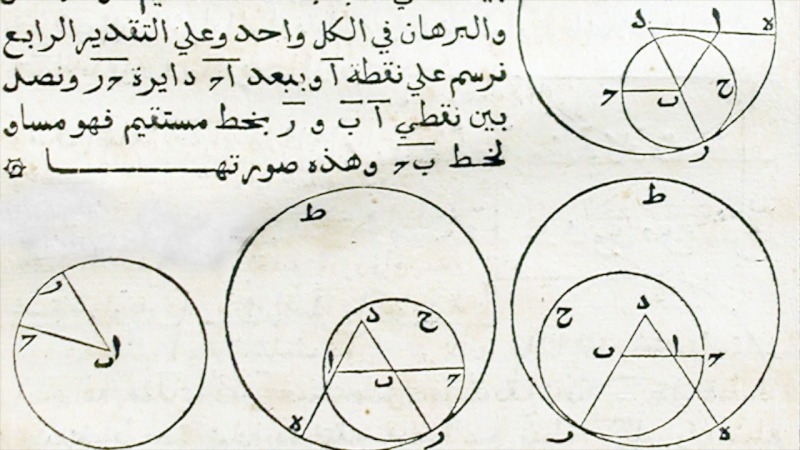 والبرهان في الكل واحد وعلي التقدير الرابع
نرسم علي نقطة آ وببعد اح دايرة حر ونصل
بين نقطتي آ ب و ر بخط مستقيم فهو مساو
لخط ب ح وهذه صورتها
د ا ه
ح ب ح
ر
ط
ح
د
ب ا ح
ر ه
ط
ح
د
ا ب ح
ه ر
ر
ح
ا ب